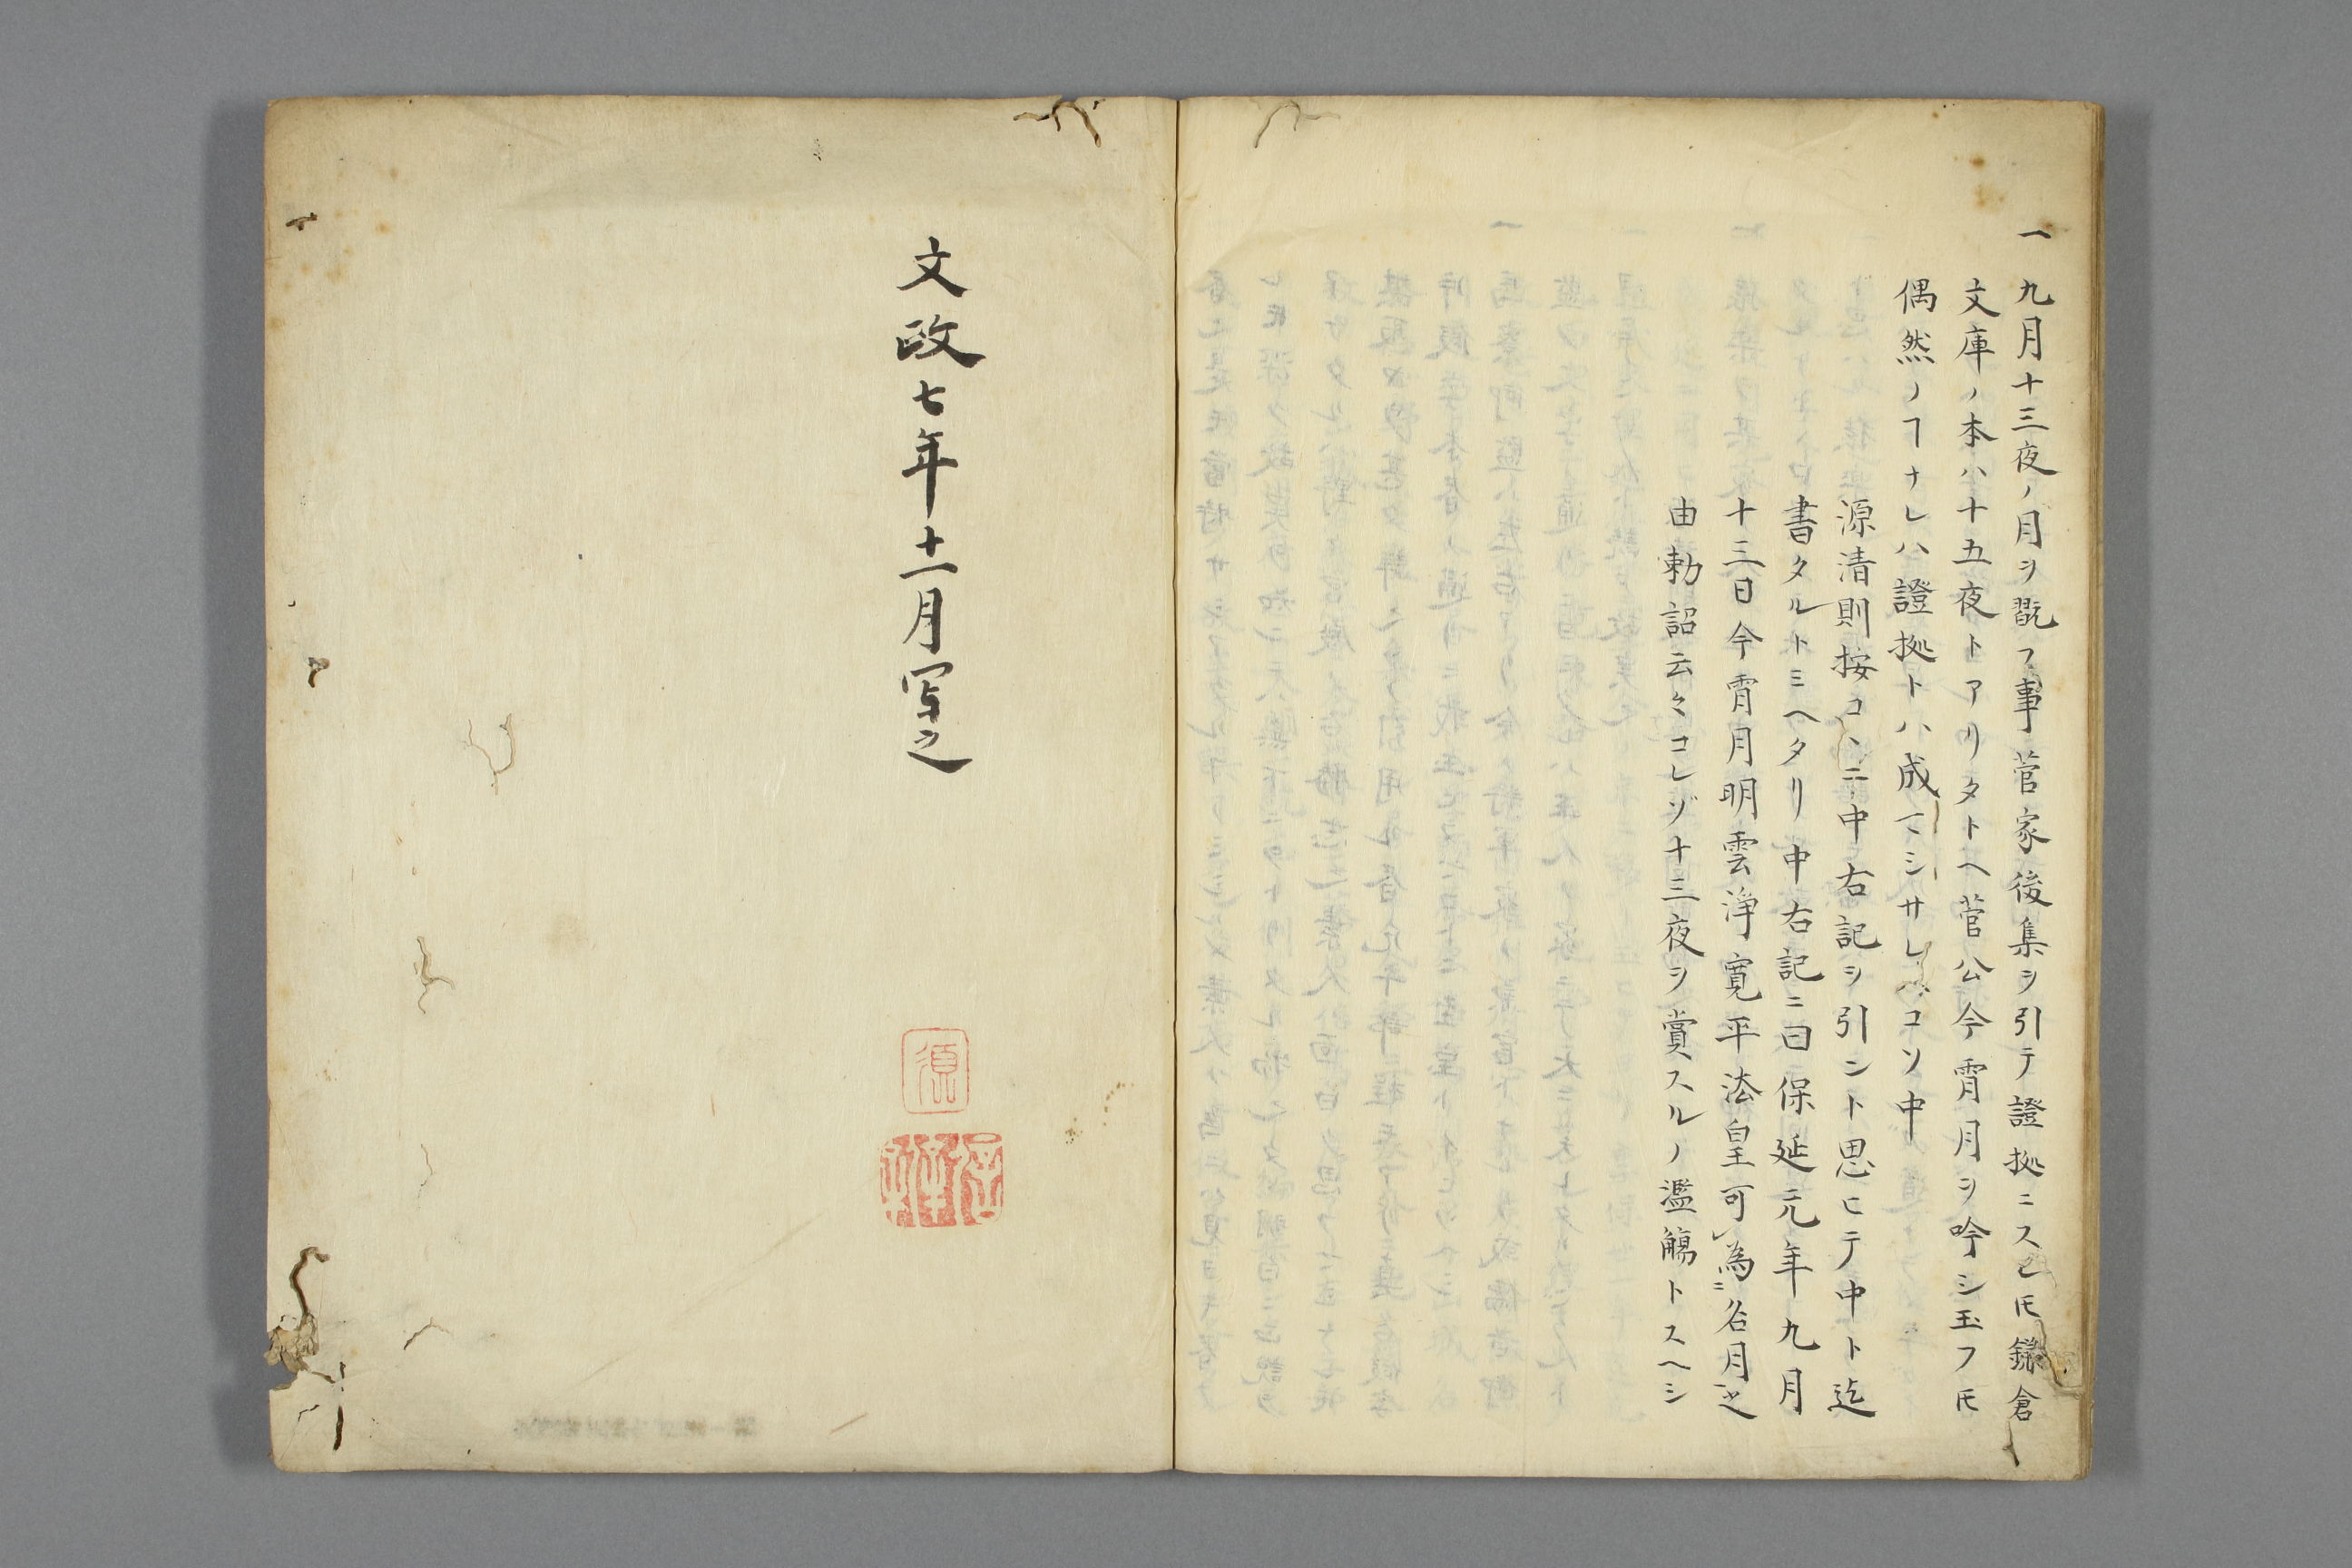 一 九月十三夜ノ月ヲ翫フ事菅家後集ヲ引テ證拠ニスレ𪜈鎌倉
文庫ノ本ハ十五夜トアリタトヘ菅公今霄月ヲ吟シ玉フ𪜈
偶然ノヿナレハ證拠トハ成マシサレハコソ中
源清則按コヽニ中右記ヲ引ント思ヒテ中ト迄
書タルトミヘタリ中右記ニ曰保延元年九月
十三日今霄月明雲浄寛平法皇可為名月之
由勅詔云々コレゾ十三夜ヲ賞スルノ濫觴トスヘシ
文政七年十一月写之
源